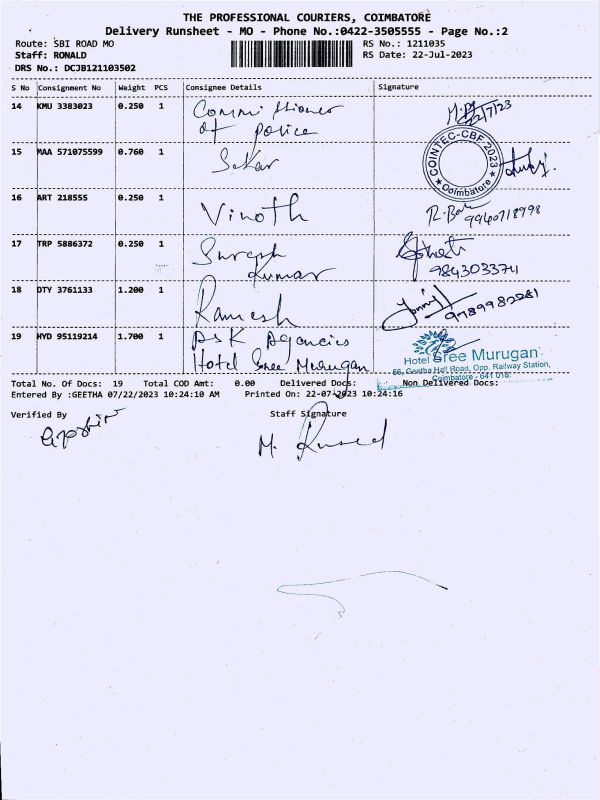 THE PROFESSIONAL COURIERS, COIMBATORE
Delivery Runsheet - MO - Phone No.:0422-3505555 - Page No.:2
Route: SBI ROAD MO RS No.: 1211035
Staff: RONALD RS Date: 22-Jul-2023
DRS No.: DCJB121103502
S No Consignment No Weight PCS Consignee Details Signature
14 KMU 3383023 0.250 1 Commissioner 22/7/23
of police
15 MAA 571075599 0.760 1 Sekar COINTEC-CBF 2023 Coimbatore
16 ART 218555 0.250 1 Vinoth 9940718998
17 TRP 5886372 0.250 1 Suresh
Kumar 9843033711
18 DTY 3761133 1.200 1 Ramesh 9789982281
19 HYD 95119214 1.700 1 Agencies
Hotel Sree Murugan
Hotel Sree Murugan
66, Geetha Hall Road, Opp. Railway Station,
Coimbatore - 641 018.
Total No. Of Docs: 19 Total COD Amt: 0.00 Delivered Docs: Non Delivered Docs:
Entered By :GEETHA 07/22/2023 10:24:10 AM Printed On: 22-07-2023 10:24:16
Verified By Staff Signature
M.